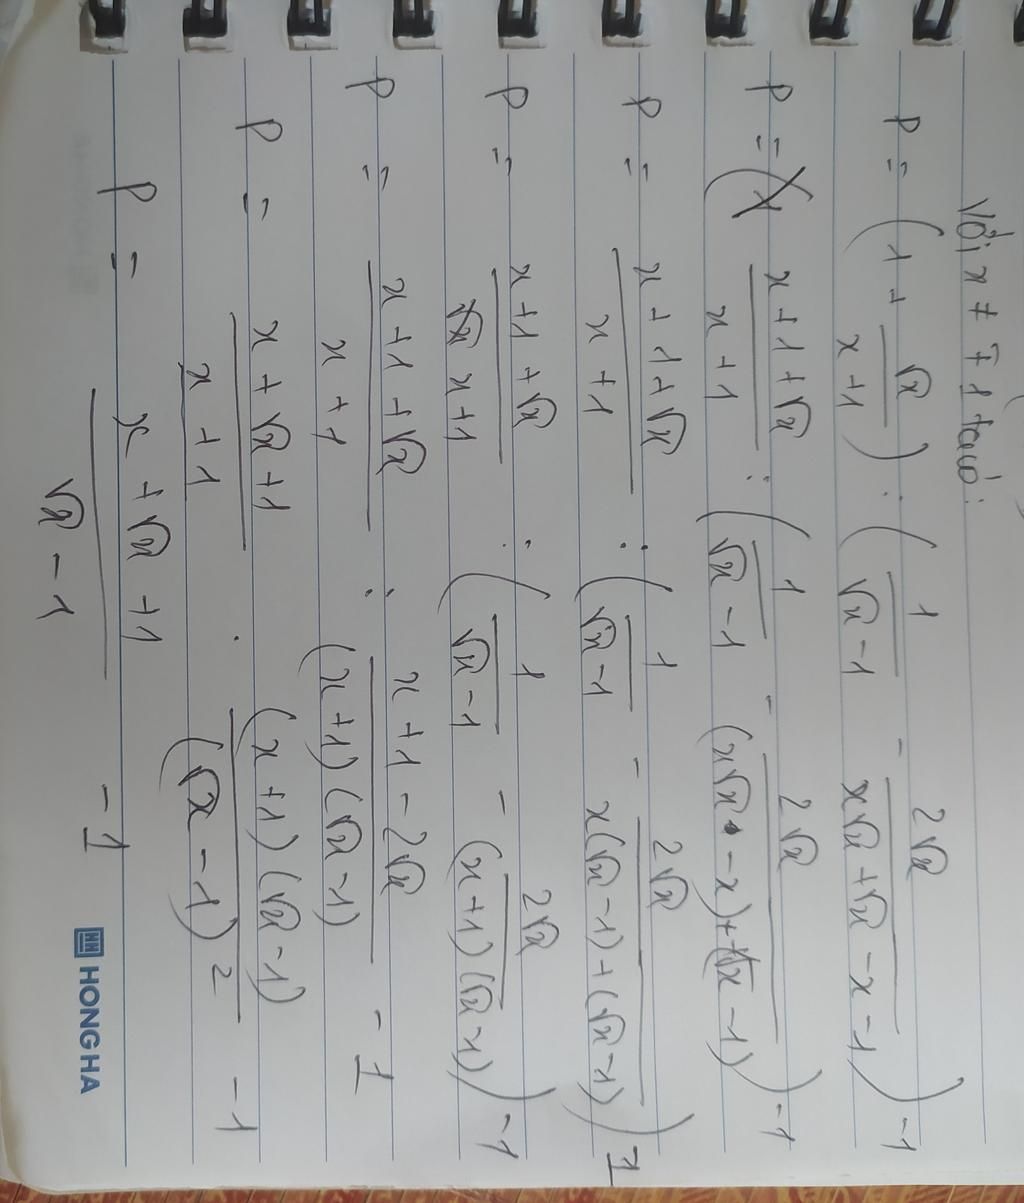 Với x ≠ ∓1 ta có:
P = (1 + √x/(x+1)) : (1/(√x-1) - 2√x/(x√x+√x-x-1)) -1
P = (x+1+√x)/(x+1) : (1/(√x-1) - 2√x/((x√x-x)+(√x-1))) -1
P = (x+1+√x)/(x+1) : (1/(√x-1) - 2√x/(x(√x-1)+(√x-1))) 1
P = (x+1+√x)/(x+1) : (1/(√x-1) - 2√x/((x+1)(√x-1))) -1
P = (x+1+√x)/(x+1) : (x+1-2√x)/((x+1)(√x-1)) -1
P = (x+√x+1)/(x+1) . ((x+1)(√x-1))/(√x-1)² -1
P = (x+√x+1)/(√x-1) -1
HONG HA